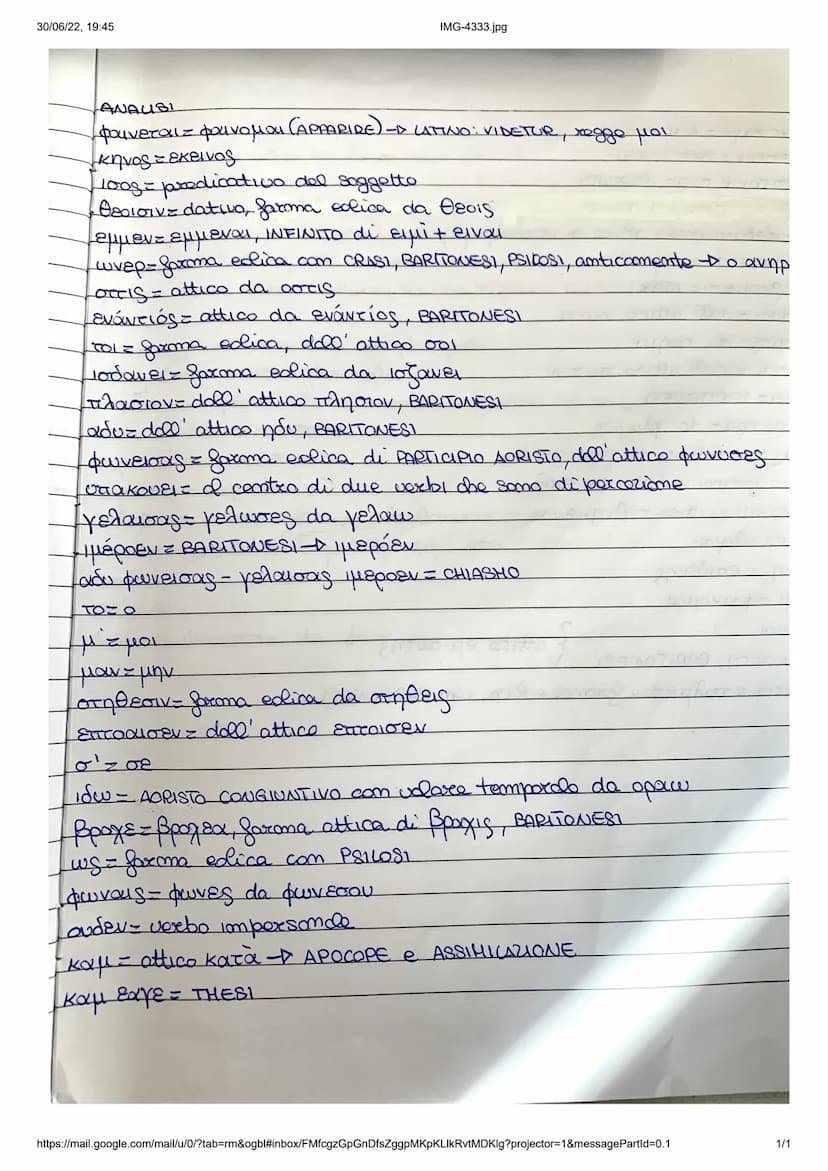 30/06/22, 19:45
IMG-4333.jpg
ANALISI
φαινεται= φαινομαι (APPARIRE) → LATINO: VIDETUR, regge μοι
κηνος = εκεινος
ισος= predicativo del soggetto
θεοισιν= dativo, forma eolica da θεοις
εμμεν= εμμεναι, INFINITO di ειμι + ειναι
ωνερ= forma eolica con CRASI, BARITONESI, PSILOSI, anticamente → ο ανηρ
οττις = attico da οστις
ενάντιός= attico da ενάντίος, BARITONESI
τοι = forma eolica, dall' attico σοι
ισδανει= forma eolica da ισζανει
πλασιον= dall' attico πλησιον, BARITONESI
αδυ= dall' attico ηδυ, BARITONESI
φωνεισας = forma eolica di PARTICIPIO AORISTO, dall' attico
υπακουει= al centro di due verbi che sono di percezione
γελαισας= γελωσες da γελαω
ιμέροεν = BARITONESI → ιμερόεν
αδυ φωνεισας - γελαισας ιμεροεν = CHIASMO
το= ο
μ'= μοι
μαν= μην
στηθεσιν= forma eolica da στηθεις
επτοαισεν = dall' attico επτοισεν
σ'= σε
ιδω = AORISTO CONGIUNTIVO con valore temporale da οραω
βροχε= βροχεα, forma attica di βραχις, BARITONESI
ως= forma eolica con PSILOSI
φωναις= φωνες da
ουδεν= verbo impersonale
καμ = attico κατὰ → APOCOPE e ASSIMILAZIONE
καμ εαγε = THESI
https://mail.google.com/mail/u/0/?tab=rm&ogbl#inbox/FMfcgzGpGnDfsZggpMKpKLlkRvtMDKlg?projector=1&messagePartId=0.1
1/1